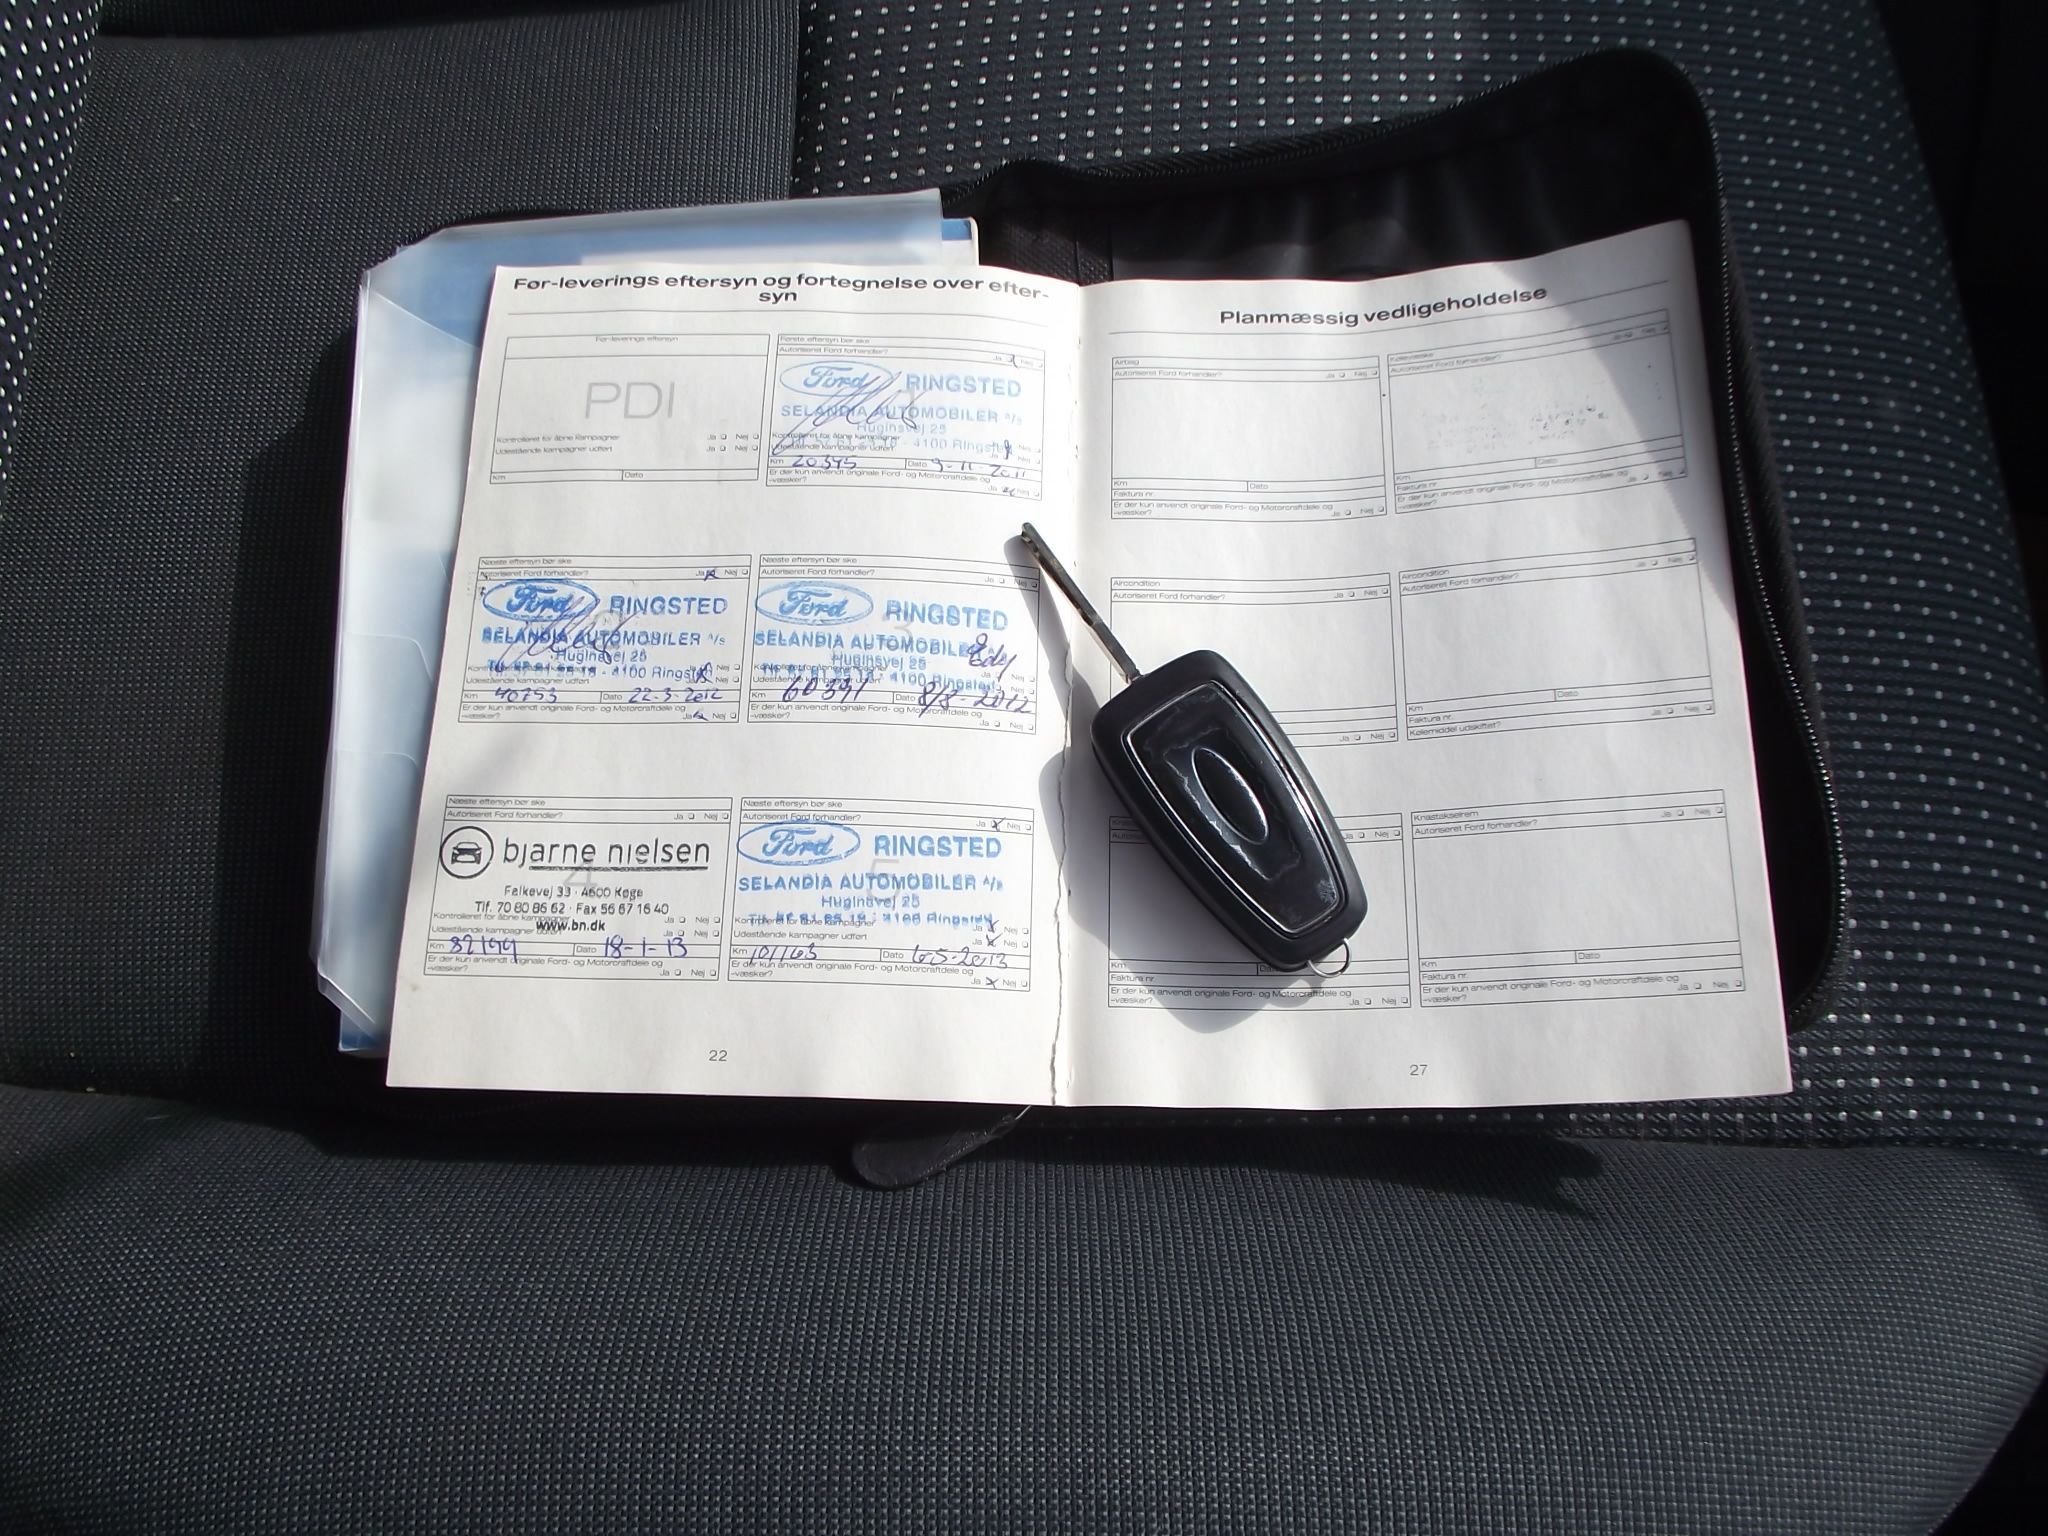 Før-leverings eftersyn og fortegnelse over efter-
syn
Før-leverings eftersyn
PDI
Kontrolleret for åbne kampagner Ja Nej
Udestående kampagner udført Ja Nej
Km Dato
Første eftersyn bør ske
Autoriseret Ford forhandler? Ja Nej
Ford RINGSTED
SELANDIA AUTOMOBILER A/S
Huginsvej 25
4100 Ringsted
Km 20345 Dato 9-11-2011
Er der kun anvendt originale Ford- og Motorcraftdele og
-væsker? Ja Nej
Næste eftersyn bør ske
Autoriseret Ford forhandler? Ja Nej
Ford RINGSTED
SELANDIA AUTOMOBILER A/S
Huginsvej 25
4100 Ringsted
Udestående kampagner udført
Km 40753 Dato 22-3-2012
Er der kun anvendt originale Ford- og Motorcraftdele og
-væsker? Ja Nej
Næste eftersyn bør ske
Autoriseret Ford forhandler? Ja Nej
3
Ford RINGSTED
SELANDIA AUTOMOBILER
Huginsvej 25
4100 Ringsted
Udestående kampagner udført
Km 60391 Dato 8/8-2012
Er der kun anvendt originale Ford- og Motorcraftdele og
-væsker? Ja Nej
Næste eftersyn bør ske
Autoriseret Ford forhandler? Ja Nej
bjarne nielsen
4
Falkevej 33 · 4600 Køge
Tlf. 70 80 86 62 · Fax 56 67 16 40
Kontrolleret for åbne kampagner Ja Nej
www.bn.dk
Udestående kampagner udført Ja Nej
Km 82199 Dato 18-1-13
Er der kun anvendt originale Ford- og Motorcraftdele og
-væsker? Ja Nej
Næste eftersyn bør ske
Autoriseret Ford forhandler? Ja Nej
Ford RINGSTED
5
SELANDIA AUTOMOBILER A/S
Huginsvej 25
4100 Ringsted
Kontrolleret for åbne kampagner Ja Nej
Udestående kampagner udført Ja Nej
Km 101163 Dato 6-5-2013
Er der kun anvendt originale Ford- og Motorcraftdele og
-væsker? Ja Nej
22
Planmæssig vedligeholdelse
Airbag
Autoriseret Ford forhandler? Ja Nej
Km Dato
Faktura nr.
Er der kun anvendt originale Ford- og Motorcraftdele og
-væsker? Ja Nej
Kølevæske
Autoriseret Ford forhandler? Ja Nej
Km Dato
Faktura nr.
Er der kun anvendt originale Ford- og Motorcraftdele og
-væsker? Ja Nej
Aircondition
Autoriseret Ford forhandler? Ja Nej
Ja Nej
Aircondition
Autoriseret Ford forhandler? Ja Nej
Km Dato
Faktura nr.
Kølemiddel udskiftet? Ja Nej
Ja Nej
Km
Faktura nr.
Er der kun anvendt originale Ford- og Motorcraftdele og
-væsker? Ja Nej
Knastakselrem
Autoriseret Ford forhandler? Ja Nej
Km Dato
Faktura nr.
Er der kun anvendt originale Ford- og Motorcraftdele og
-væsker? Ja Nej
27